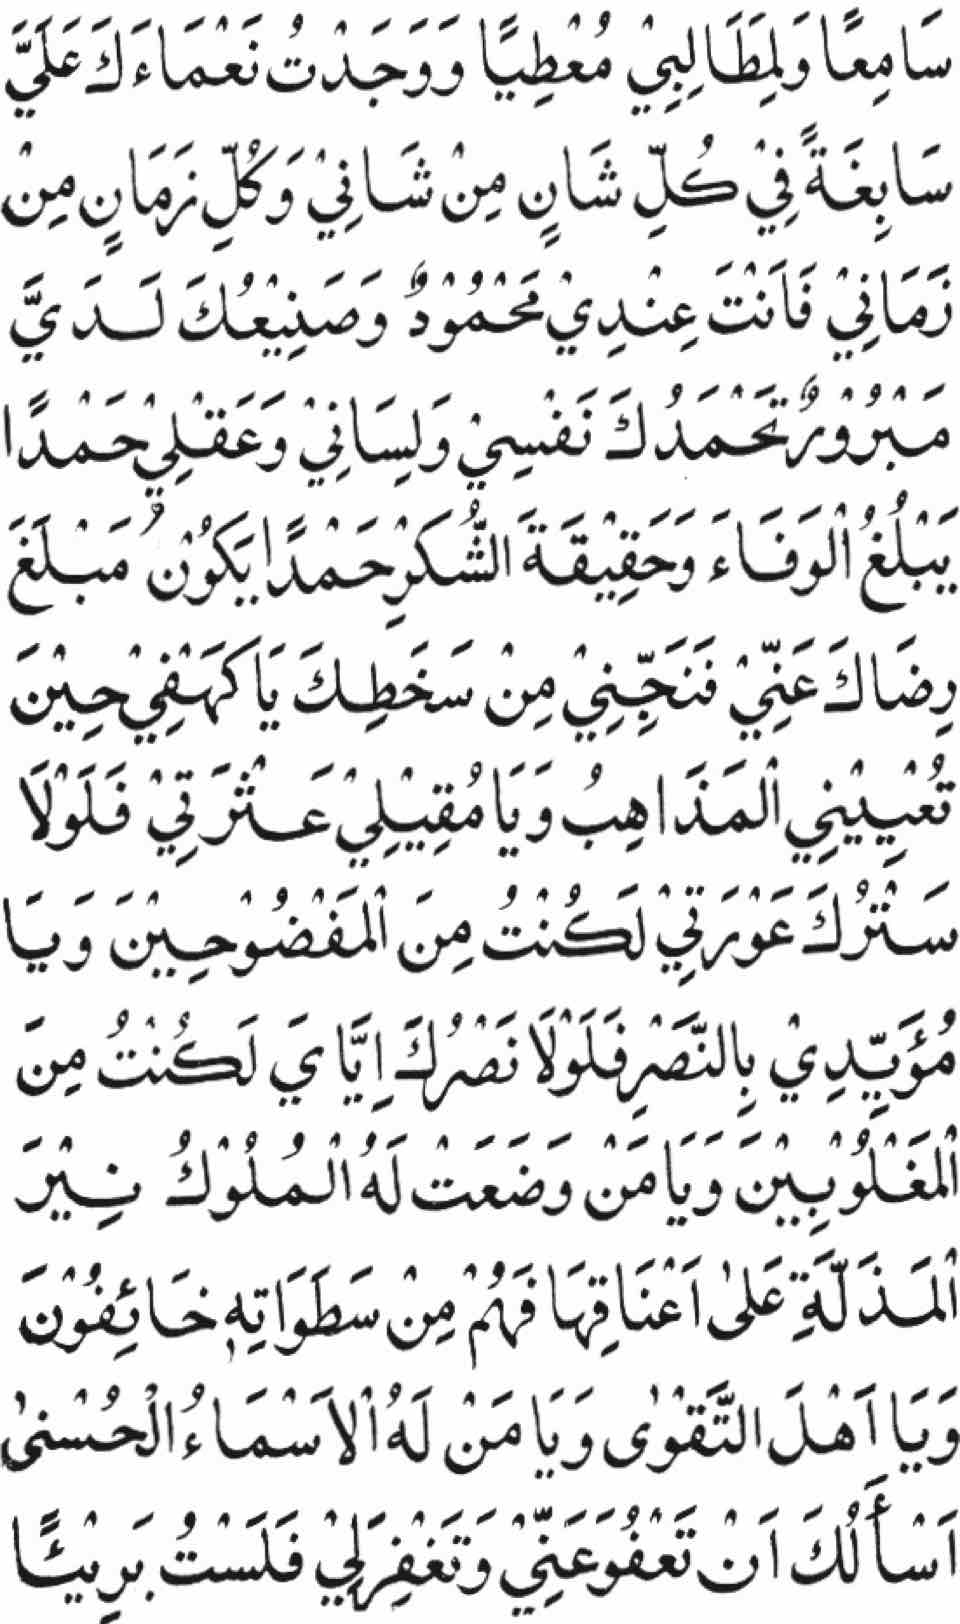 سَامِعًا وَلِمَطَالِبِيْ مُعْطِيًا وَوَجَدْتُ نَعْمَاءَكَ عَلَيَّ
سَابِغَةً فِيْ كُلِّ شَانٍ مِنْ شَانِيْ وَكُلِّ زَمَانٍ مِنْ
زَمَانِيْ فَاَنْتَ عِنْدِيْ مَحْمُوْدٌ وَصَنِيْعُكَ لَدَيَّ
مَبْرُوْرٌ تَحْمَدُكَ نَفْسِيْ وَلِسَانِيْ وَعَقْلِيْ حَمْدًا
يَبْلُغُ الْوَفَاءَ وَحَقِيْقَةَ الشُّكْرِ حَمْدًا يَكُوْنُ مَبْلَغَ
رِضَاكَ عَنِّيْ فَنَجِّنِيْ مِنْ سَخَطِكَ يَا كَهْفِيْ حِيْنَ
تُعْيِيْنِي الْمَذَاهِبُ وَيَا مُقِيْلِيْ عَثْرَتِيْ فَلَوْلَا
سَتْرُكَ عَوْرَتِيْ لَكُنْتُ مِنَ الْمَفْضُوْحِيْنَ وَيَا
مُؤَيِّدِيْ بِالنَّصْرِ فَلَوْلَا نَصْرُكَ اِيَّايَ لَكُنْتُ مِنَ
الْمَغْلُوْبِيْنَ وَيَا مَنْ وَضَعَتْ لَهُ الْمُلُوْكُ نِيْرَ
الْمَذَلَّةِ عَلٰى اَعْنَاقِهَا فَهُمْ مِنْ سَطَوَاتِهٖ خَائِفُوْنَ
وَيَا اَهْلَ التَّقْوٰى وَيَا مَنْ لَهُ الْاَسْمَاءُ الْحُسْنٰى
اَسْأَلُكَ اَنْ تَعْفُوَ عَنِّيْ وَتَغْفِرَ لِيْ فَلَسْتُ بَرِيْئًا